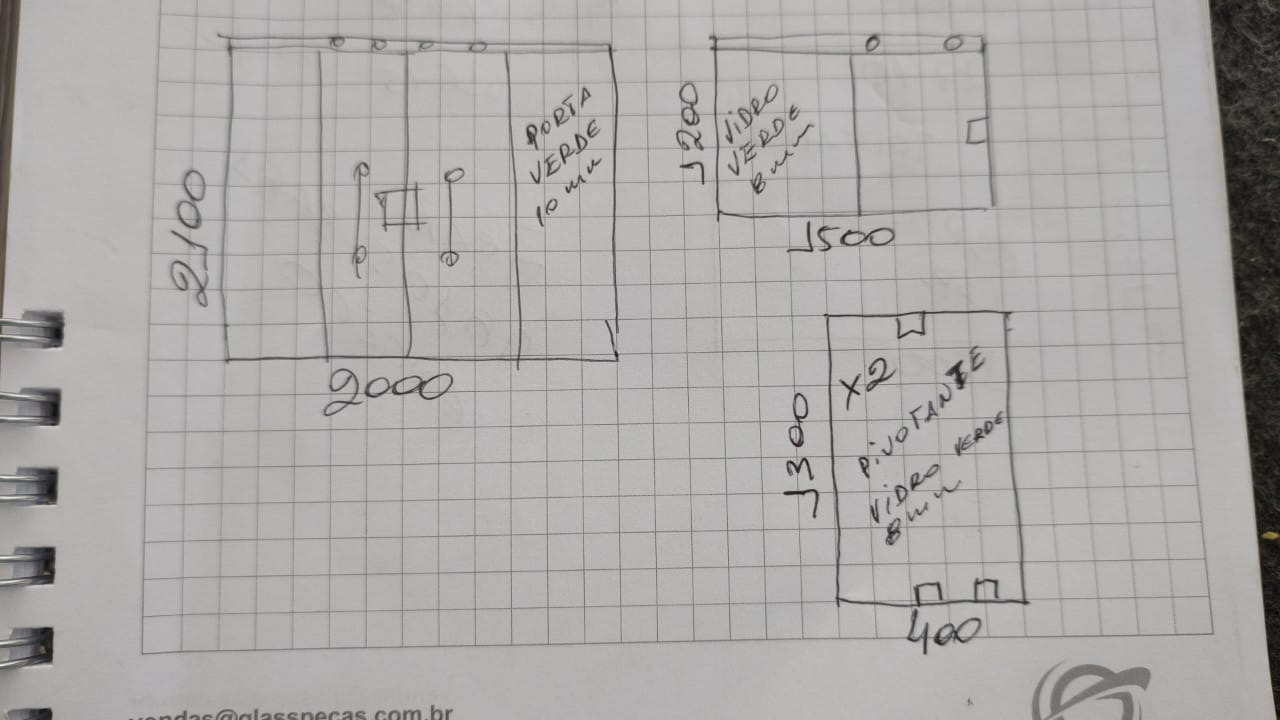 PORTA
VERDE
10 mm
2100
2000
VIDRO
VERDE
8 mm
1200
1500
x2
PIVOTANTE
VIDRO VERDE
8 mm
1300
400
vendas@glasspecas.com.br